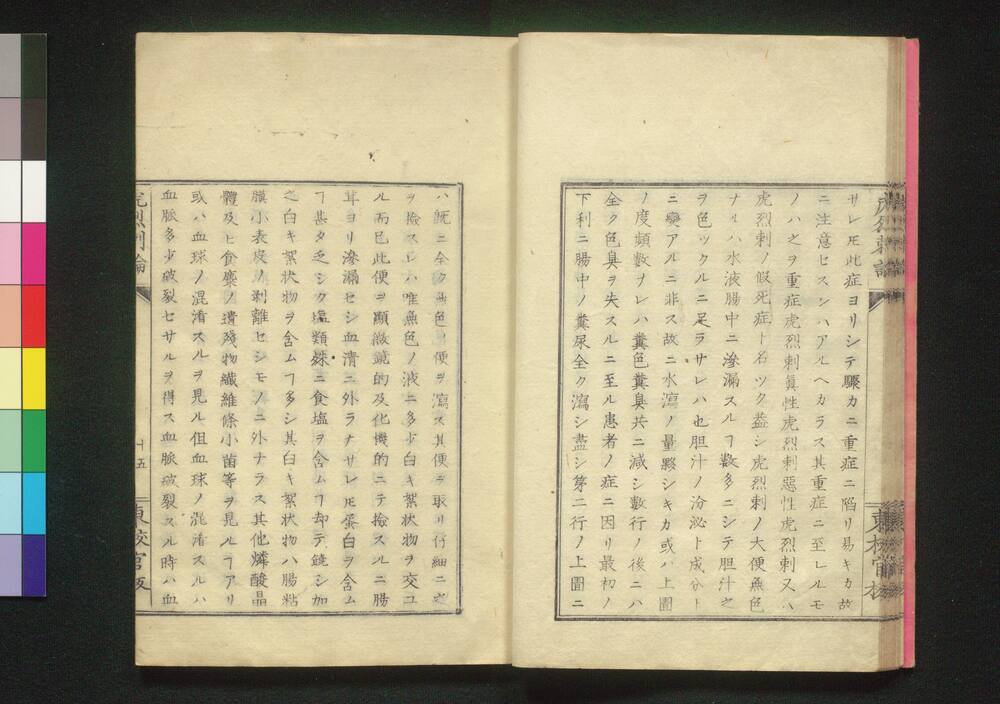 虎烈刺論
サレ𪜈此症ヨリシテ驟カニ重症ニ陷リ易キカ故
ニ注意セスンハアルヘカラス其重症ニ至レルモ
ノハ之ヲ重症虎烈刺眞性虎烈刺惡性虎烈刺又ハ
虎烈刺ノ假死症ト名ツク蓋シ虎烈刺ノ大便無色
ナルハ水液腸中ニ滲漏スルヿ數多ニシテ胆汁之
ヲ色ツクルニ足ラサレハ也胆汁ノ分泌ト成分ト
ニ變アルニ非ス故ニ水瀉ノ量夥シキカ或ハ上圊
ノ度頻數ナレハ糞色糞臭共ニ減シ數行ノ後ニハ
全ク色臭ヲ失スルニ至ル患者ノ症ニ因リ最初ノ
下利ニ腸中ノ糞尿全ク瀉シ盡シ第二行ノ上圊ニ
東校官板
ハ既ニ全ク無色ノ便ヲ瀉ス其便ヲ取リ仔細ニ之
ヲ撿スレハ唯無色ノ液ニ多少白キ絮状物ヲ交ユ
ル而已此便ヲ顯微鏡的及化機的ニテ撿スルニ腸
耳ヨリ滲漏セシ血清ニ外ラナサレ𪜈蛋白ヲ含ム
ヿ甚タ乏シク塩類殊ニ食塩ヲ含ムヿ却テ饒シ加
之白キ絮状物ヲ含ムヿ多シ其白キ絮状物ハ腸粘
膜小表皮ノ剥離セシモノニ外ナラス其他燐酸晶
體及ヒ食糜ノ遺殘物纖維條小菌等ヲ見ルヿアリ
或ハ血球ノ混淆スルヲ見ル但血球ノ混淆スルハ
血脈多少破裂セサルヲ得ス血脈破裂スル時ハ血
虎烈刺論
十五
東校官板